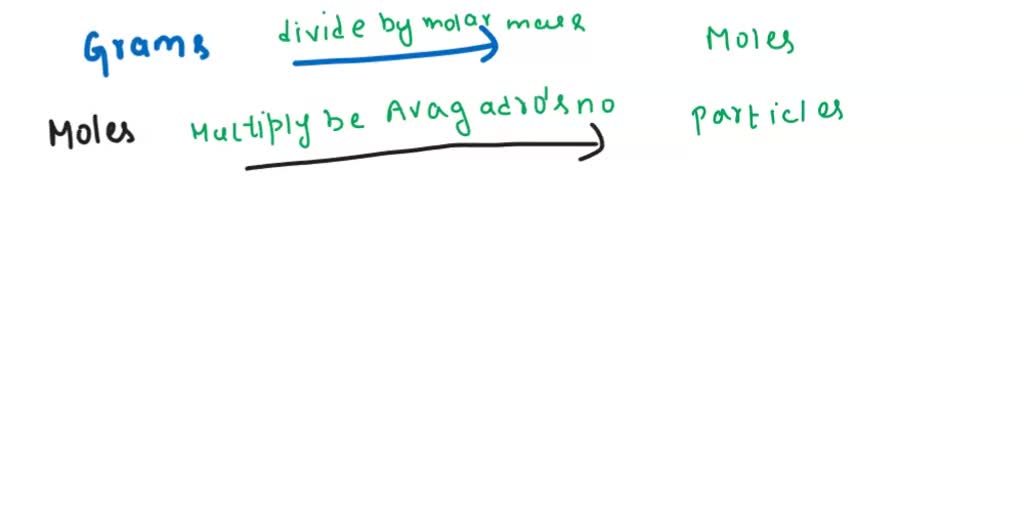 Grams divide by molar mass Moles
Moles Multiply be Avagadro's no particles